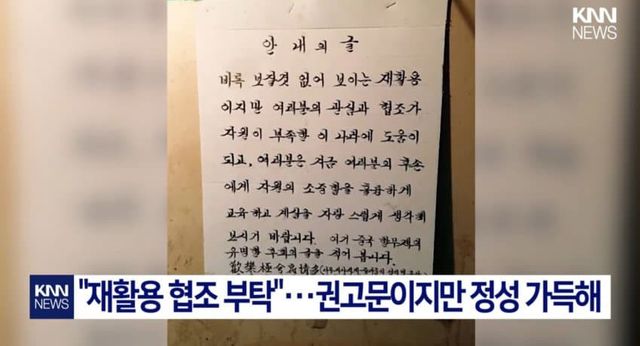 KNN
NEWS
안내의 글
비록 보잘것 없어 보이는 재활용
이지만 여러분의 관심과 협조가
자원이 부족한 이 나라에 도움이
되고, 여러분은 지금 여러분의 후손
에게 자원의 소중함을 훌륭하게
교육하고 계심을 자랑 스럽게 생각해
보시기 바랍니다. 여기 중국 한무제의
유명한 추풍의 글을 적어 봅니다.
歡樂極兮哀情多
KNN
NEWS
"재활용 협조 부탁"…권고문이지만 정성 가득해